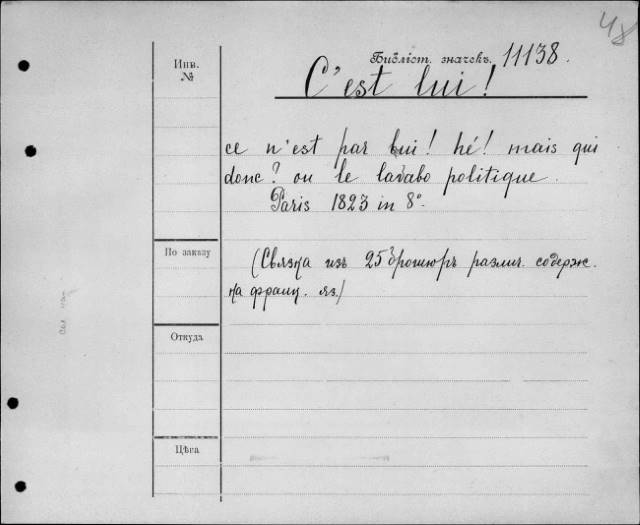 48
Библіот. значекъ. 11138.
Инв.
№
C'est lui!
ce n'est par lui! hé! mais qui
donc? ou le lavabo politique.
Paris 1823 in 8°.
По заказу
(Связка изъ 25 брошюръ различ. содерж.
на франц. яз.)
Откуда
Цѣна